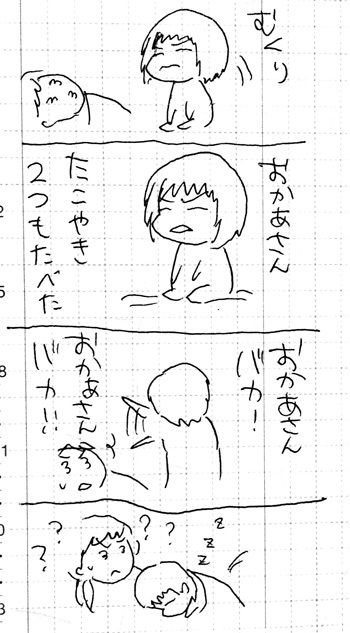 むくり
おかあさん
たこやき
2つもたべた
おかあさん
バカ!
おかあさん
バカ!!
z
z
z
? ? ? ?
2
5
8
1
0
3